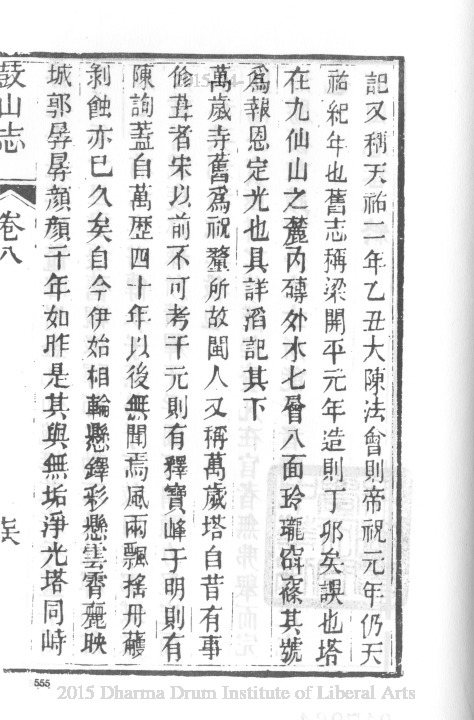 記又稱天祐二年乙丑大陳法會則帝祝元年仍天
祐紀年也舊志稱梁開平元年造則丁夘矣誤也塔
在九仙山之麓內磚外木七層八面玲瓏窈窱其號
爲報恩定光也具詳滔記其下
萬歲寺舊爲祝釐所故閩人又稱萬歲塔自昔有事
修葺者宋以前不可考于元則有釋寶峰于明則有
陳詢蓋自萬歷四十年以後無聞焉風雨飄搖丹雘
剝蝕亦已久矣自今伊始相輪懸繹彩懸雲霄麗映
城郭屭屭顏顏千年如昨是其與無垢淨光塔同峙
鼓山志
卷八
555
2015 Dharma Drum Institute of Liberal Arts